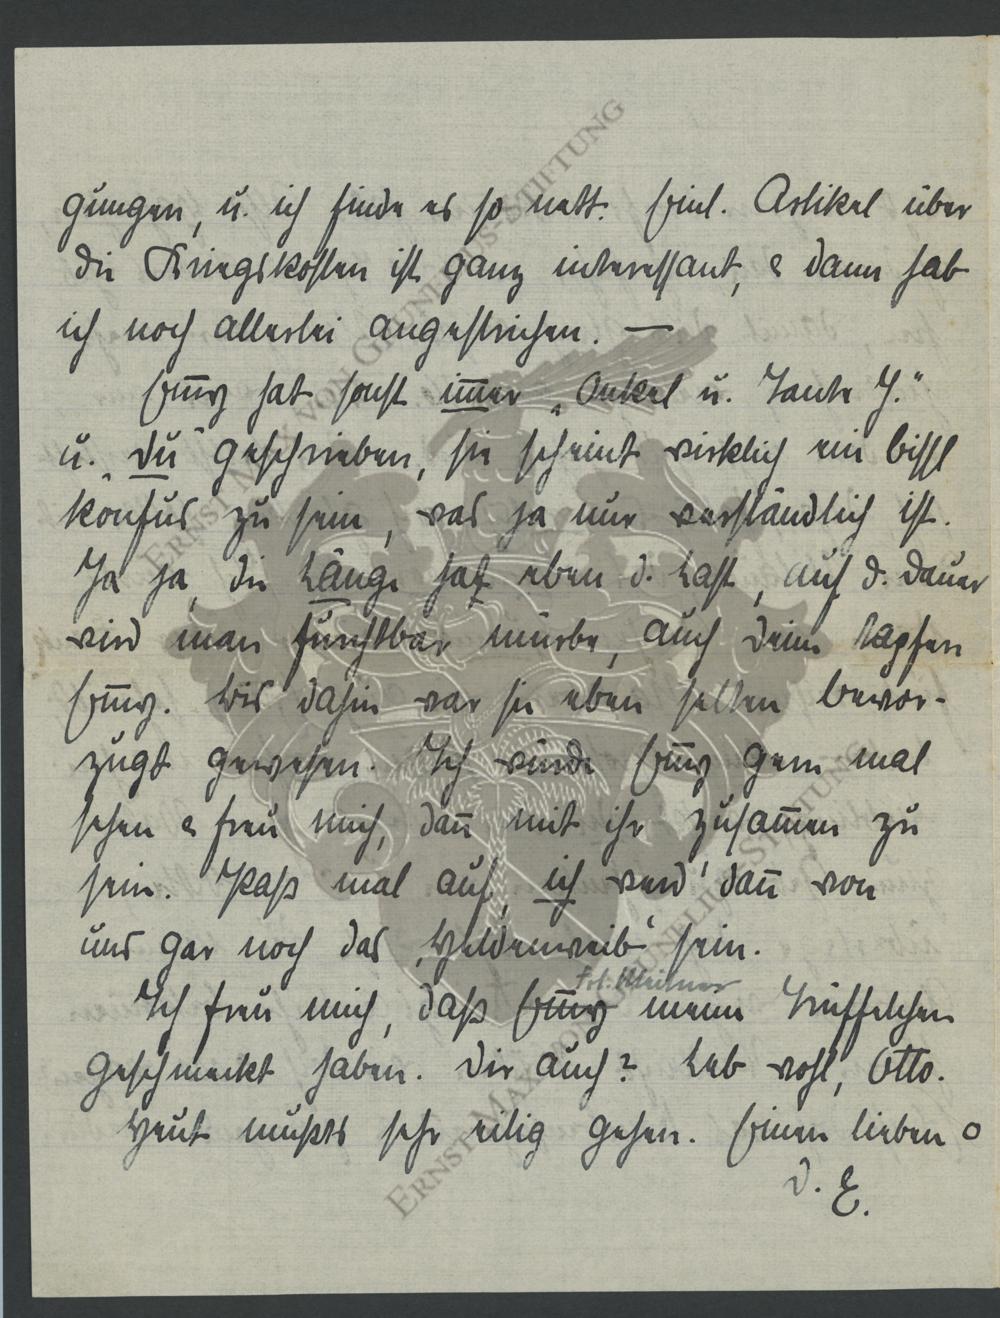 gungen, u. ich finde es so nett. Einl. Artikel über
die Kriegskosten ist ganz interessant, & dann hab
ich noch allerlei angestrichen. —
Em̅y hat sonst im̅er „Onkel u. Tante J.“
u. „Du“ geschrieben, sie scheint wirklich ein bissl
konfus zu sein, was ja nur verständlich ist.
Ja ja, die Länge hat eben d. Last, auf d. Dauer
wird man furchtbar mürbe, auch Deine tapfere
Em̅y. Bis dahin war sie eben selten bevor-
zugt gewesen. Ich würde Em̅y gern mal
sehen & freu mich, dan̅ mit ihr zusam̅en zu
sein. Paß mal auf, ich werd' dan̅ von
uns gar noch das „Heldenweib“ sein.
Frl. Meixner
Ich freu mich, daß Em̅y meine Trüffelchen
geschmeckt haben. Dir auch? Leb wohl, Otto.
Heut mußts sehr eilig gehen. Einen lieben o
D. E.
ERNST MAX VON GRUNELIUS-STIFTUNG
ERNST MAX VON GRUNELIUS-STIFTUNG